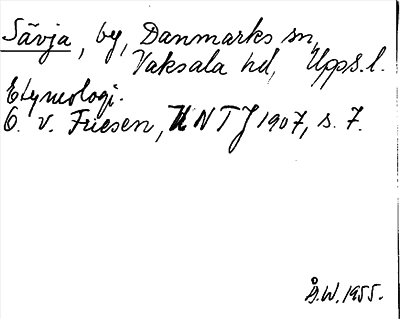 Sävja, by, Danmarks sn,
Vaksala hd, Upps.l.
Etymologi.
O. v. Friesen, UNTJ 1907, s. 7.
Å.W. 1955.